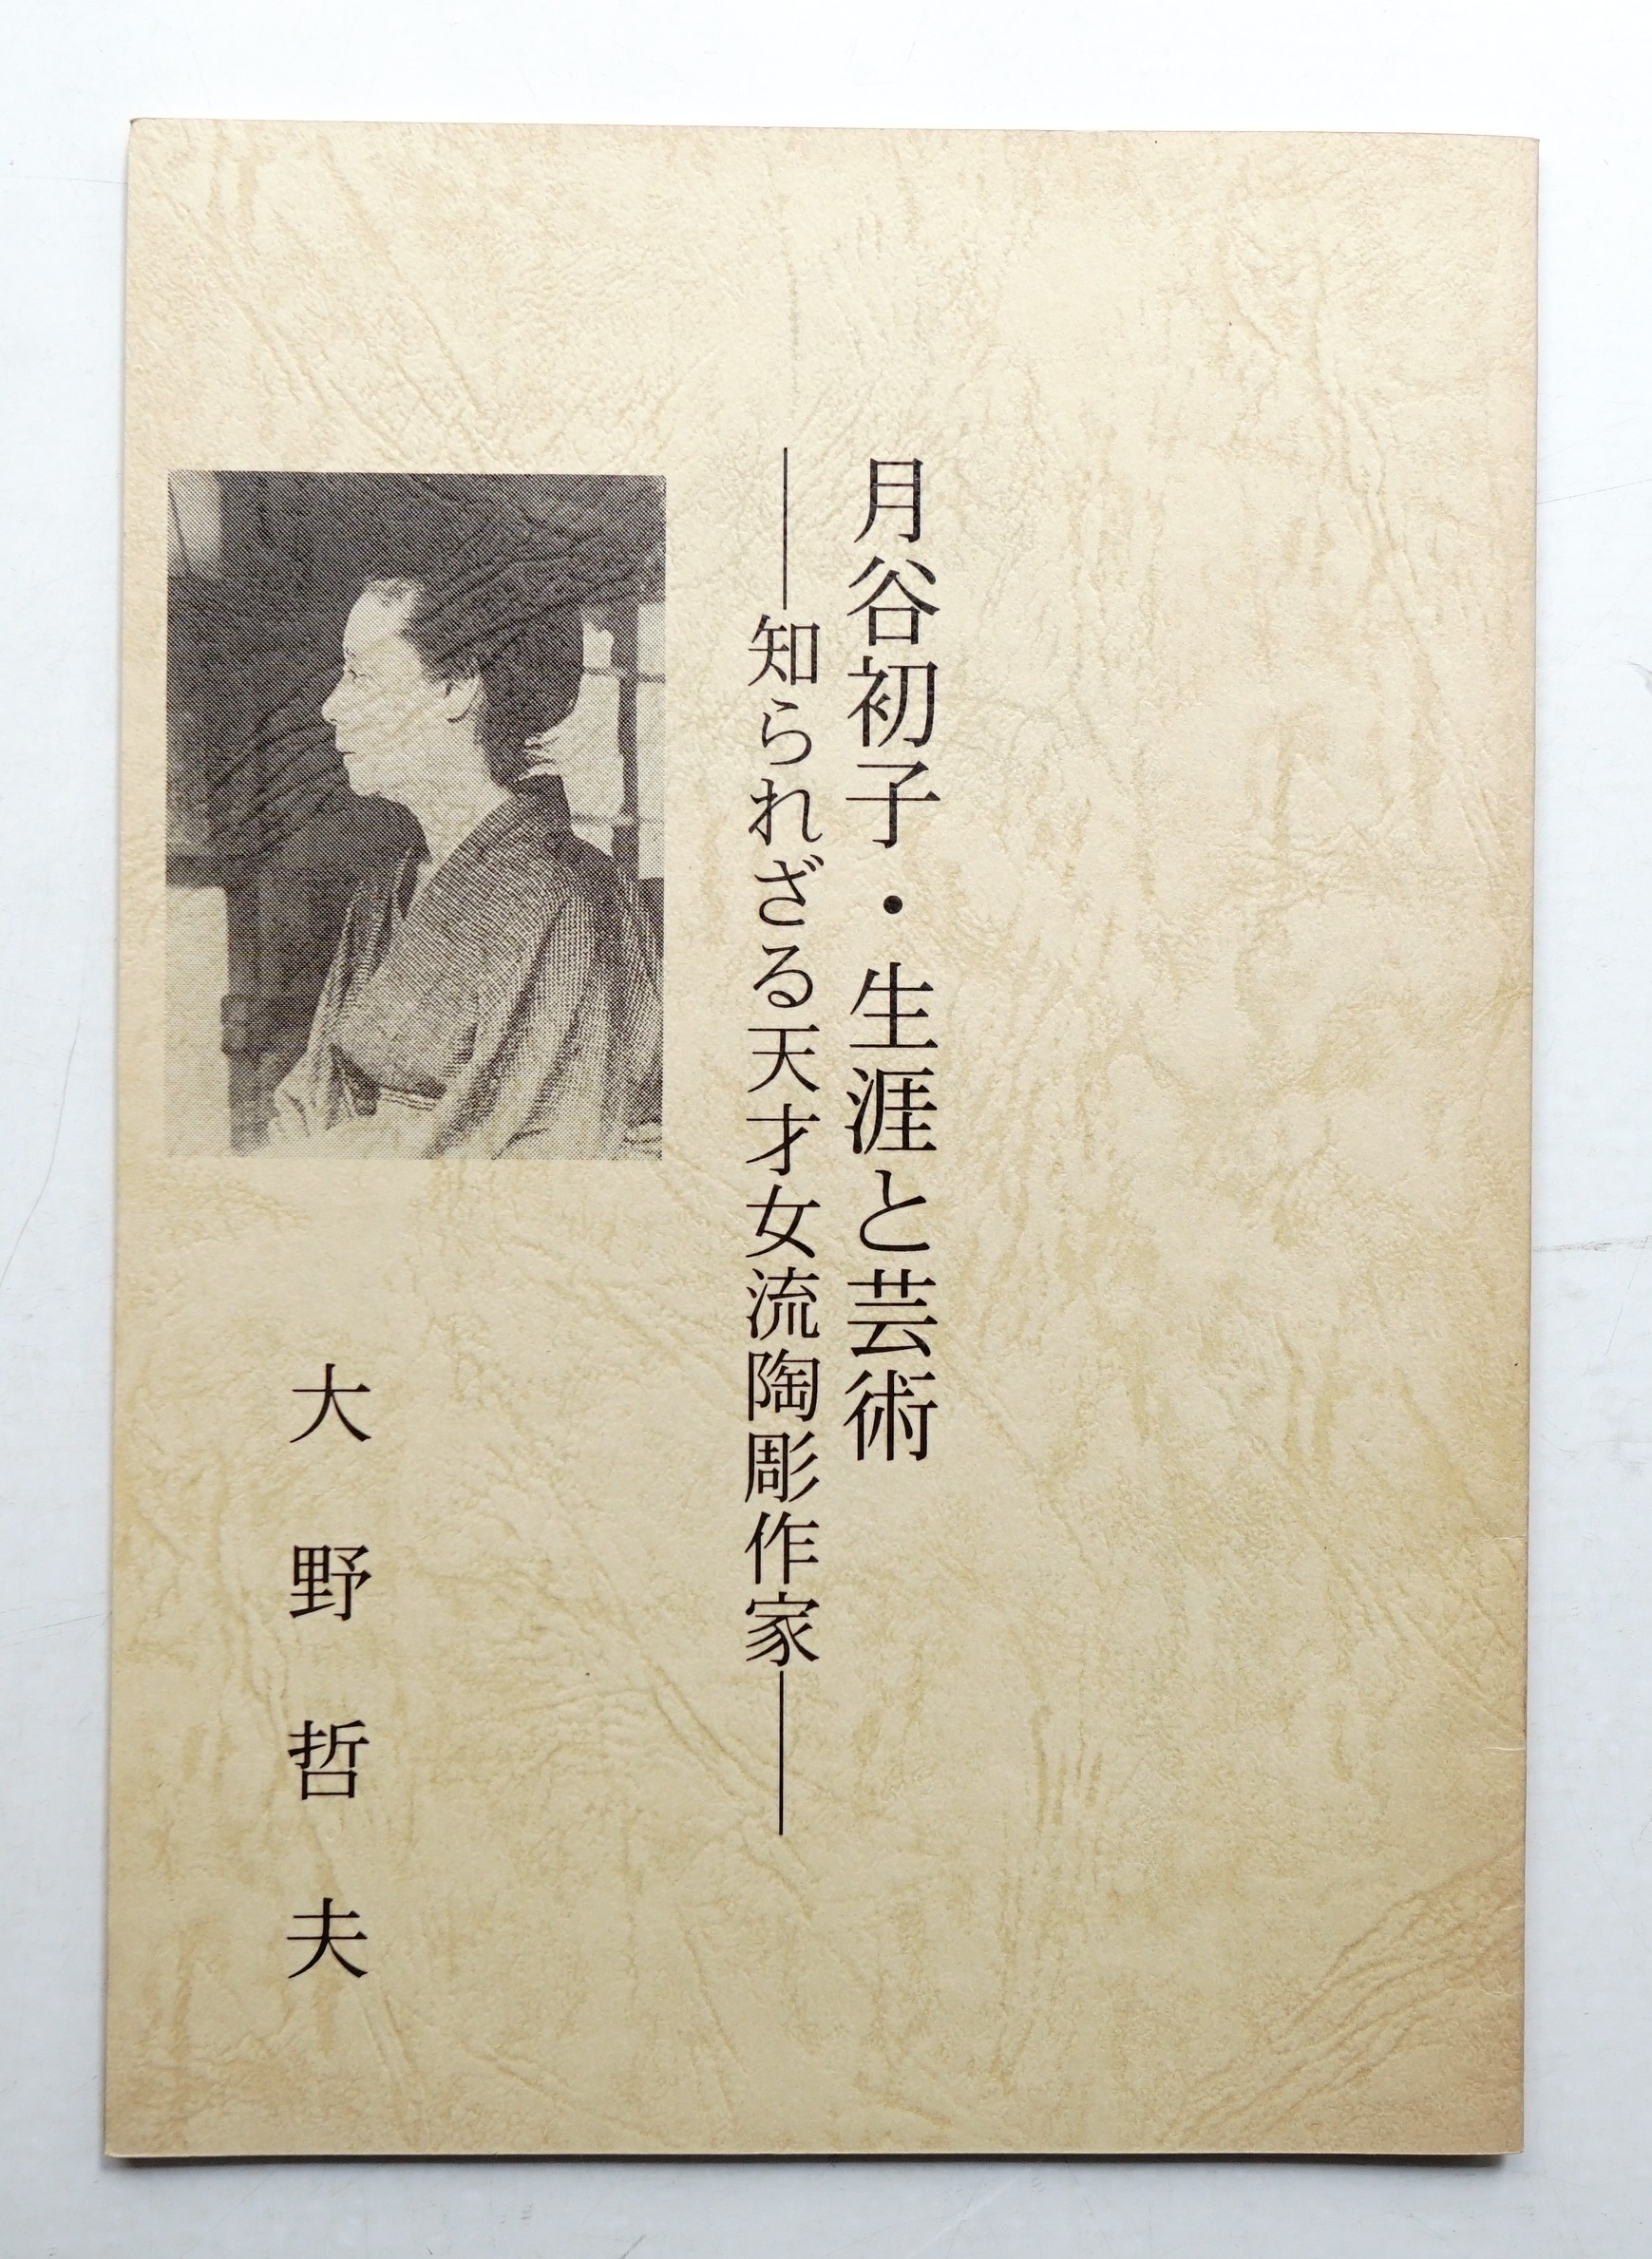 月谷初子・生涯と芸術
――知られざる天才女流陶彫作家――
大野哲夫